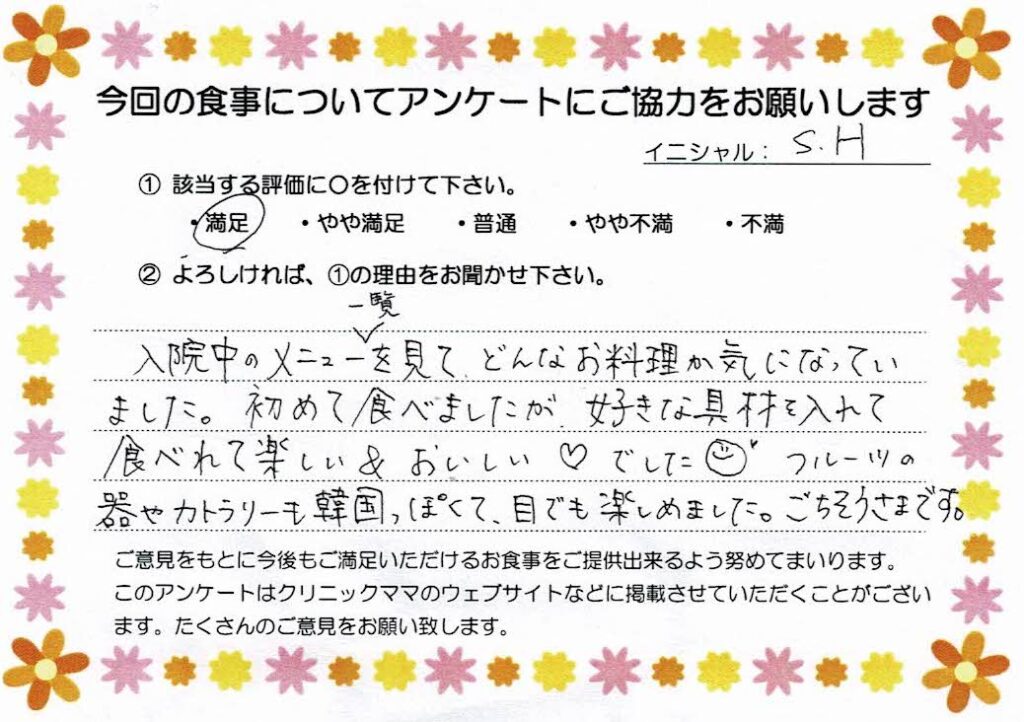 今回の食事についてアンケートにご協力をお願いします
イニシャル： S.H
① 該当する評価に○を付けて下さい。
・満足 ・やや満足 ・普通 ・やや不満 ・不満
② よろしければ、①の理由をお聞かせ下さい。
一覧
入院中のメニューを見て、どんなお料理か気になってい
ました。初めて食べましたが、好きな具材を入れて
食べれて楽しい & おいしい ♡ でした☺ フルーツの
器やカトラリーも韓国っぽくて、目でも楽しめました。ごちそうさまです。
ご意見をもとに今後もご満足いただけるお食事をご提供出来るよう努めてまいります。
このアンケートはクリニックママのウェブサイトなどに掲載させていただくことがござい
ます。たくさんのご意見をお願い致します。